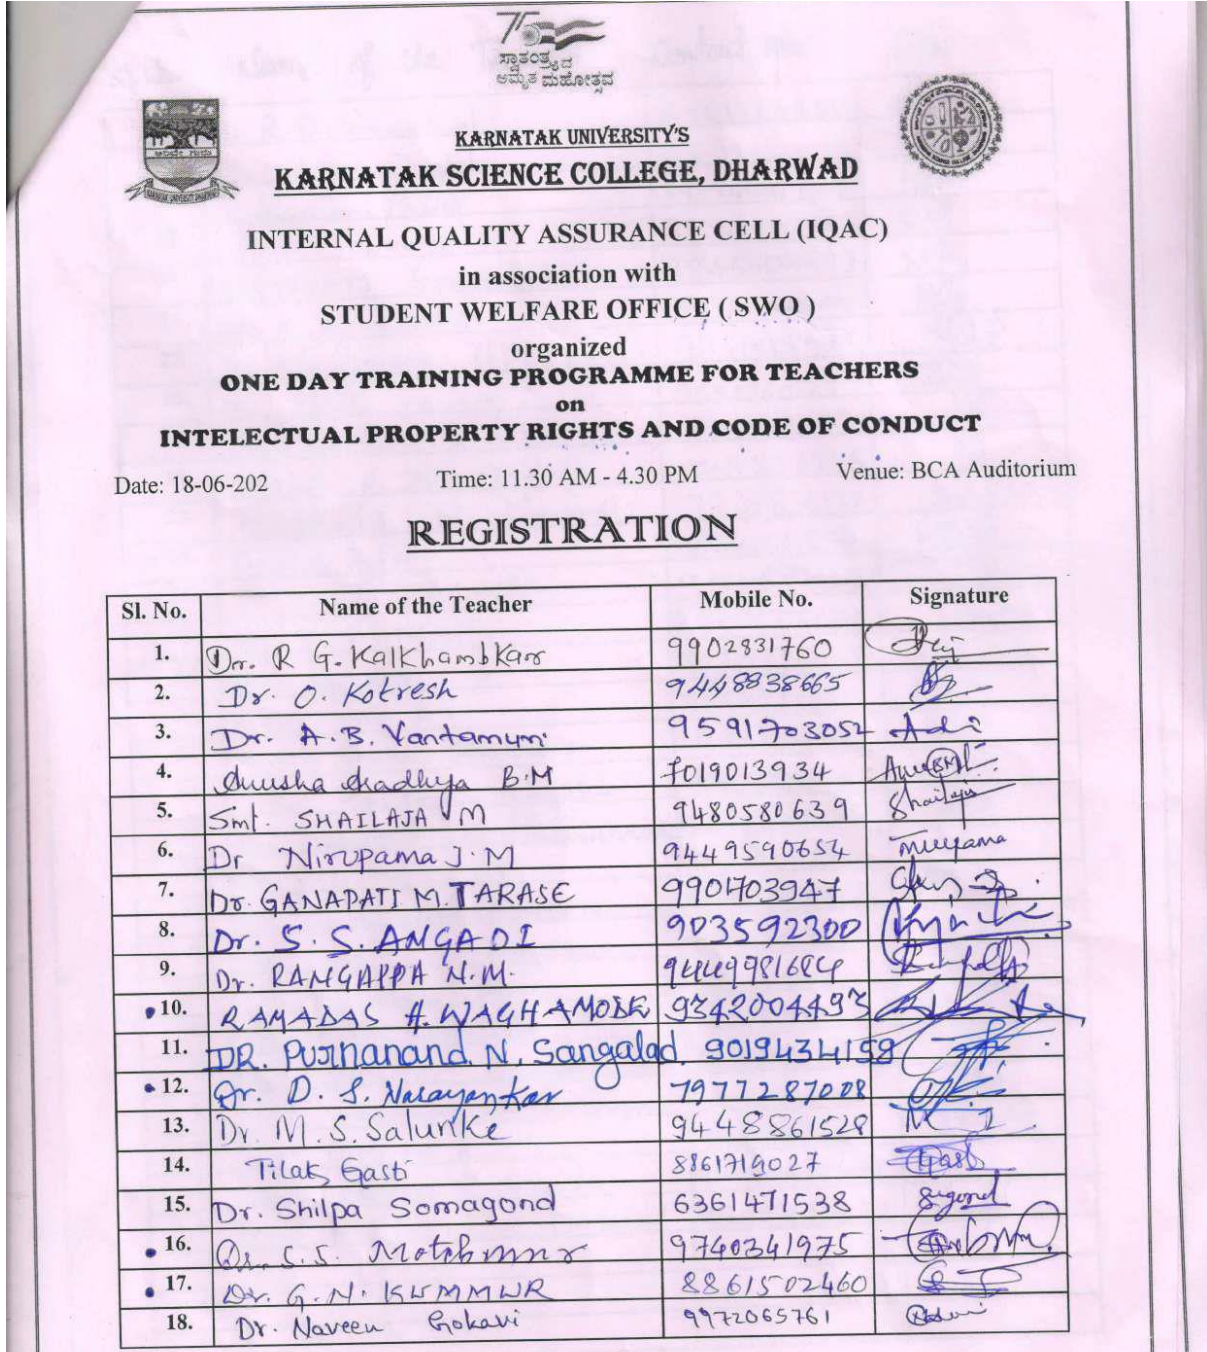 75
ಸ್ವಾತಂತ್ರ್ಯದ
ಅಮೃತ ಮಹೋತ್ಸವ
KARNATAK UNIVERSITY'S
KARNATAK SCIENCE COLLEGE, DHARWAD
INTERNAL QUALITY ASSURANCE CELL (IQAC)
in association with
STUDENT WELFARE OFFICE ( SWO )
organized
ONE DAY TRAINING PROGRAMME FOR TEACHERS
on
INTELECTUAL PROPERTY RIGHTS AND CODE OF CONDUCT
Date: 18-06-202 Time: 11.30 AM - 4.30 PM Venue: BCA Auditorium
REGISTRATION
Sl. No. Name of the Teacher Mobile No. Signature
1. Dr. R G. Kalkhambkar 9902831760
2. Dr. O. Kotresh 9448838665
3. Dr. A.B. Vantamuri 9591703052
4. Anusha Aradhya B.M 7019013934
5. Smt. SHAILAJA M 9480580639 Shailaja
6. Dr Nirupama J.M 9449590654
7. Dr. GANAPATI M. TARASE 9901703947
8. Dr. S. S. ANGADI 903592300
9. Dr. RANGAPPA N.M. 9449981684
10. RAMADAS H. WAGHAMODE 9342004493
11. DR. Purnanand. N. Sangalad 9019434159
12. Dr. D. S. Narayankar 7977287008
13. Dr. M.S. Salunke 9448861528
14. Tilak Gasti 8861719027
15. Dr. Shilpa Somagond 6361471538
16. Dr. S.S. 9740341975
17. Dr. G.N. KUMMUR 8861502460
18. Dr. Naveen Gokavi 9972065761